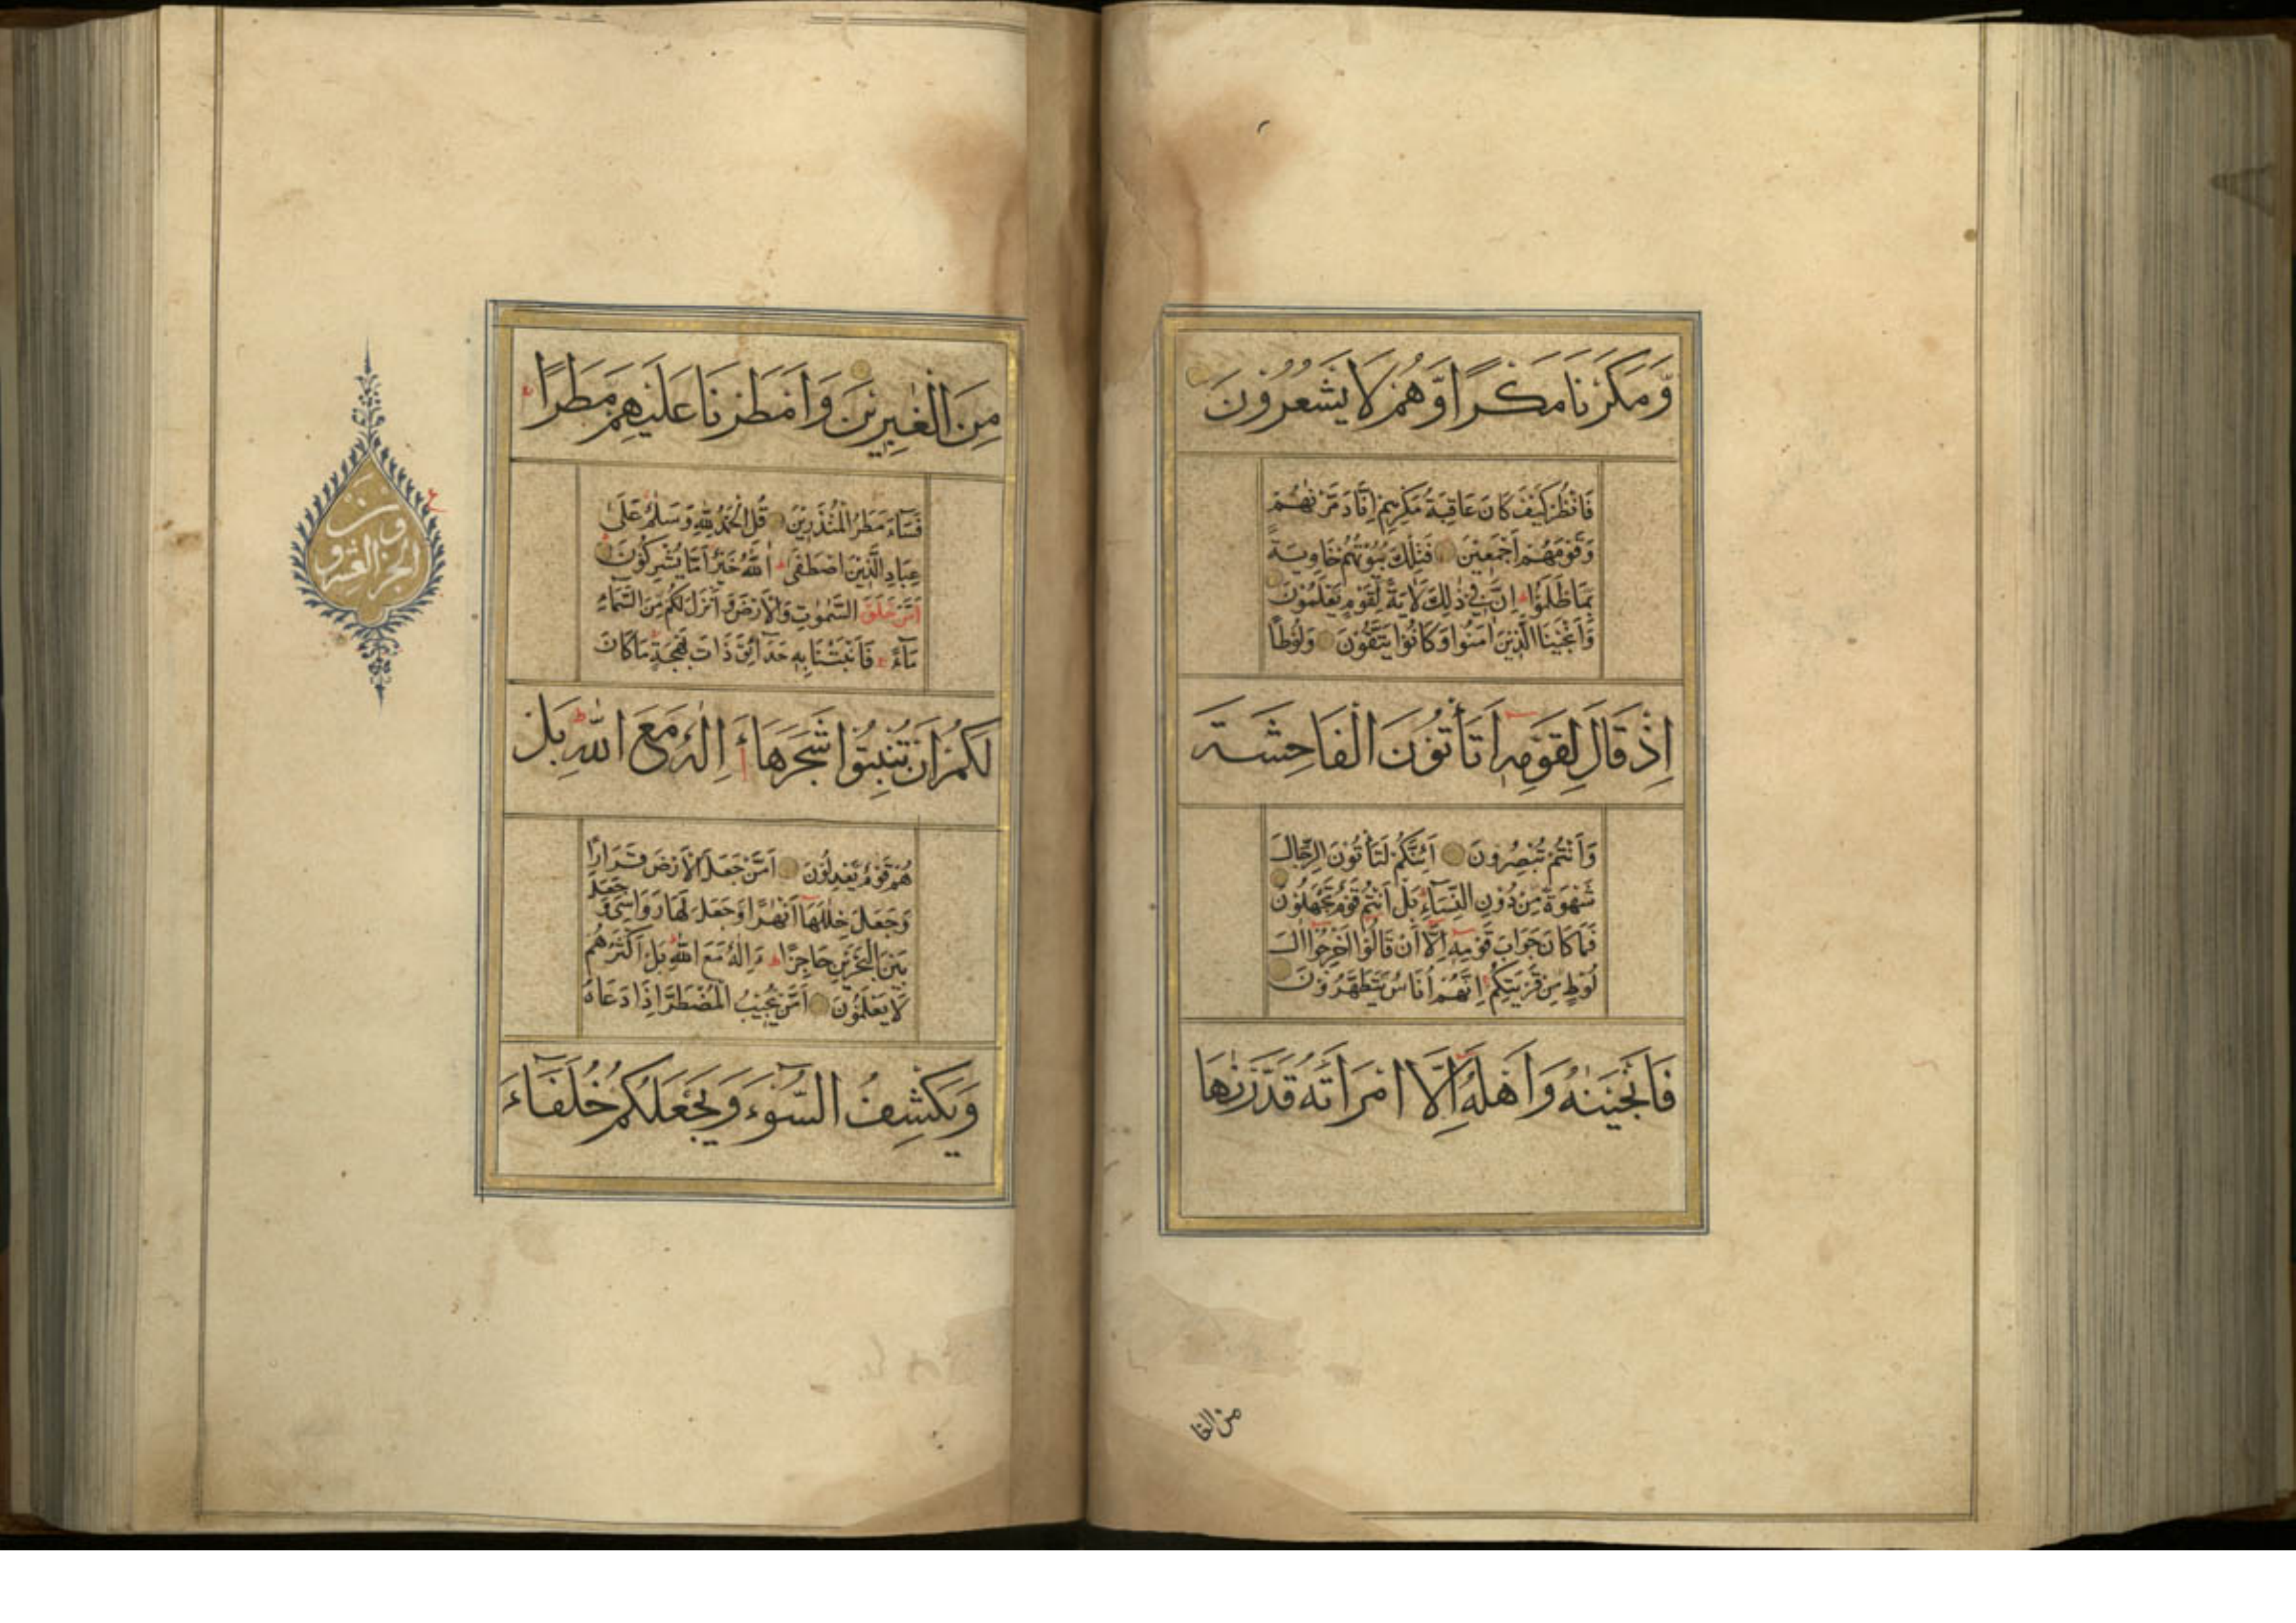 وَّمَكَرْنَا مَكْرًا وَّهُمْ لَا يَشْعُرُوْنَ
فَانْظُرْ كَيْفَ كَانَ عَاقِبَةُ مَكْرِهِمْ اَنَّا دَمَّرْنٰهُمْ
وَقَوْمَهُمْ اَجْمَعِيْنَ فَتِلْكَ بُيُوْتُهُمْ خَاوِيَةً
بِمَا ظَلَمُوْا اِنَّ فِيْ ذٰلِكَ لَاٰيَةً لِّقَوْمٍ يَّعْلَمُوْنَ
وَاَنْجَيْنَا الَّذِيْنَ اٰمَنُوْا وَكَانُوْا يَتَّقُوْنَ وَلُوْطًا
اِذْ قَالَ لِقَوْمِهٖ اَتَأْتُوْنَ الْفَاحِشَةَ
وَاَنْتُمْ تُبْصِرُوْنَ اَئِنَّكُمْ لَتَأْتُوْنَ الرِّجَالَ
شَهْوَةً مِّنْ دُوْنِ النِّسَآءِ بَلْ اَنْتُمْ قَوْمٌ تَجْهَلُوْنَ
فَمَا كَانَ جَوَابَ قَوْمِهٖٓ اِلَّآ اَنْ قَالُوْٓا اَخْرِجُوْٓا اٰلَ
لُوْطٍ مِّنْ قَرْيَتِكُمْ اِنَّهُمْ اُنَاسٌ يَّتَطَهَّرُوْنَ
فَاَنْجَيْنٰهُ وَاَهْلَهٗٓ اِلَّا امْرَاَتَهٗ قَدَّرْنٰهَا
من الغا
مِنَ الْغٰبِرِيْنَ وَاَمْطَرْنَا عَلَيْهِمْ مَّطَرًا
فَسَآءَ مَطَرُ الْمُنْذَرِيْنَ قُلِ الْحَمْدُ لِلّٰهِ وَسَلٰمٌ عَلٰى
عِبَادِهِ الَّذِيْنَ اصْطَفٰى آٰللّٰهُ خَيْرٌ اَمَّا يُشْرِكُوْنَ
اَمَّنْ خَلَقَ السَّمٰوٰتِ وَالْاَرْضَ وَاَنْزَلَ لَكُمْ مِّنَ السَّمَآءِ
مَآءً فَاَنْبَتْنَا بِهٖ حَدَآئِقَ ذَاتَ بَهْجَةٍ مَا كَانَ
لَكُمْ اَنْ تُنْبِتُوْا شَجَرَهَا ءَاِلٰهٌ مَّعَ اللّٰهِ بَلْ
هُمْ قَوْمٌ يَّعْدِلُوْنَ اَمَّنْ جَعَلَ الْاَرْضَ قَرَارًا
وَّجَعَلَ خِلٰلَهَآ اَنْهٰرًا وَّجَعَلَ لَهَا رَوَاسِيَ وَجَعَلَ
بَيْنَ الْبَحْرَيْنِ حَاجِزًا ءَاِلٰهٌ مَّعَ اللّٰهِ بَلْ اَكْثَرُهُمْ
لَا يَعْلَمُوْنَ اَمَّنْ يُّجِيْبُ الْمُضْطَرَّ اِذَا دَعَاهُ
وَيَكْشِفُ السُّوْٓءَ وَيَجْعَلُكُمْ خُلَفَآءَ
الجزء العشرون